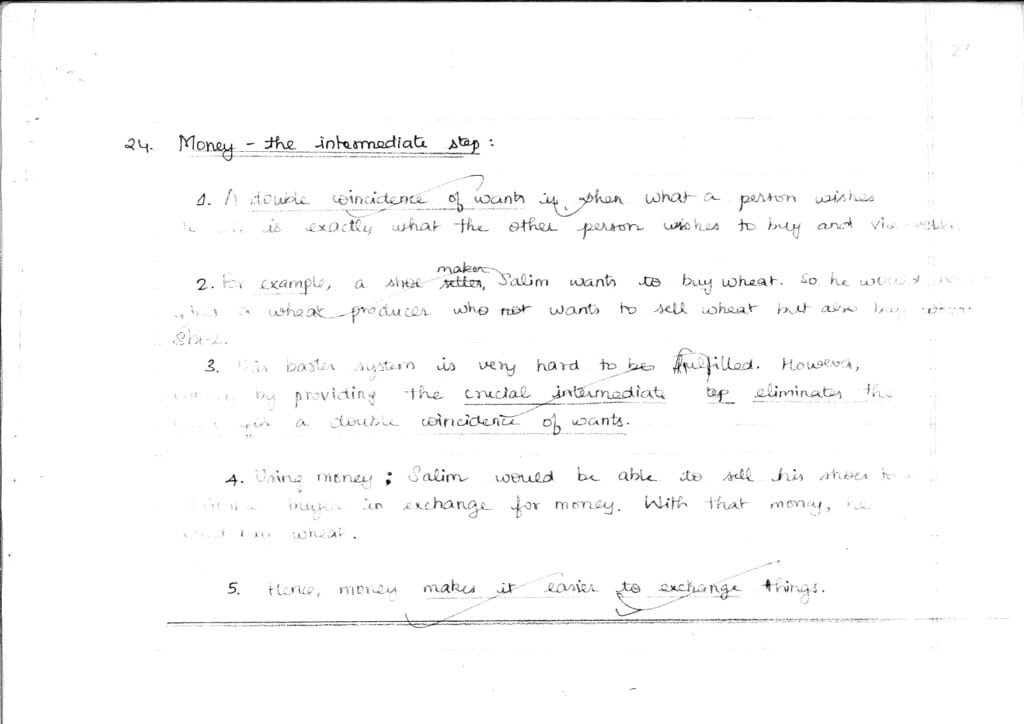 27
24. Money - the intermediate step :
1. A double coincidence of wants is when what a person wishes
is exactly what the other person wishes to buy and
2. For example, a shoe maker, Salim wants to buy wheat. So he would
a wheat producer who not wants to sell wheat but also buy
3. barter system is very hard to be fulfilled. However,
by providing the crucial intermediate step eliminates the
a double coincidence of wants.
4. Using money ; Salim would be able to sell his shoes to a
buyer in exchange for money. With that money, he
wheat.
5. Hence, money makes it easier to exchange things.